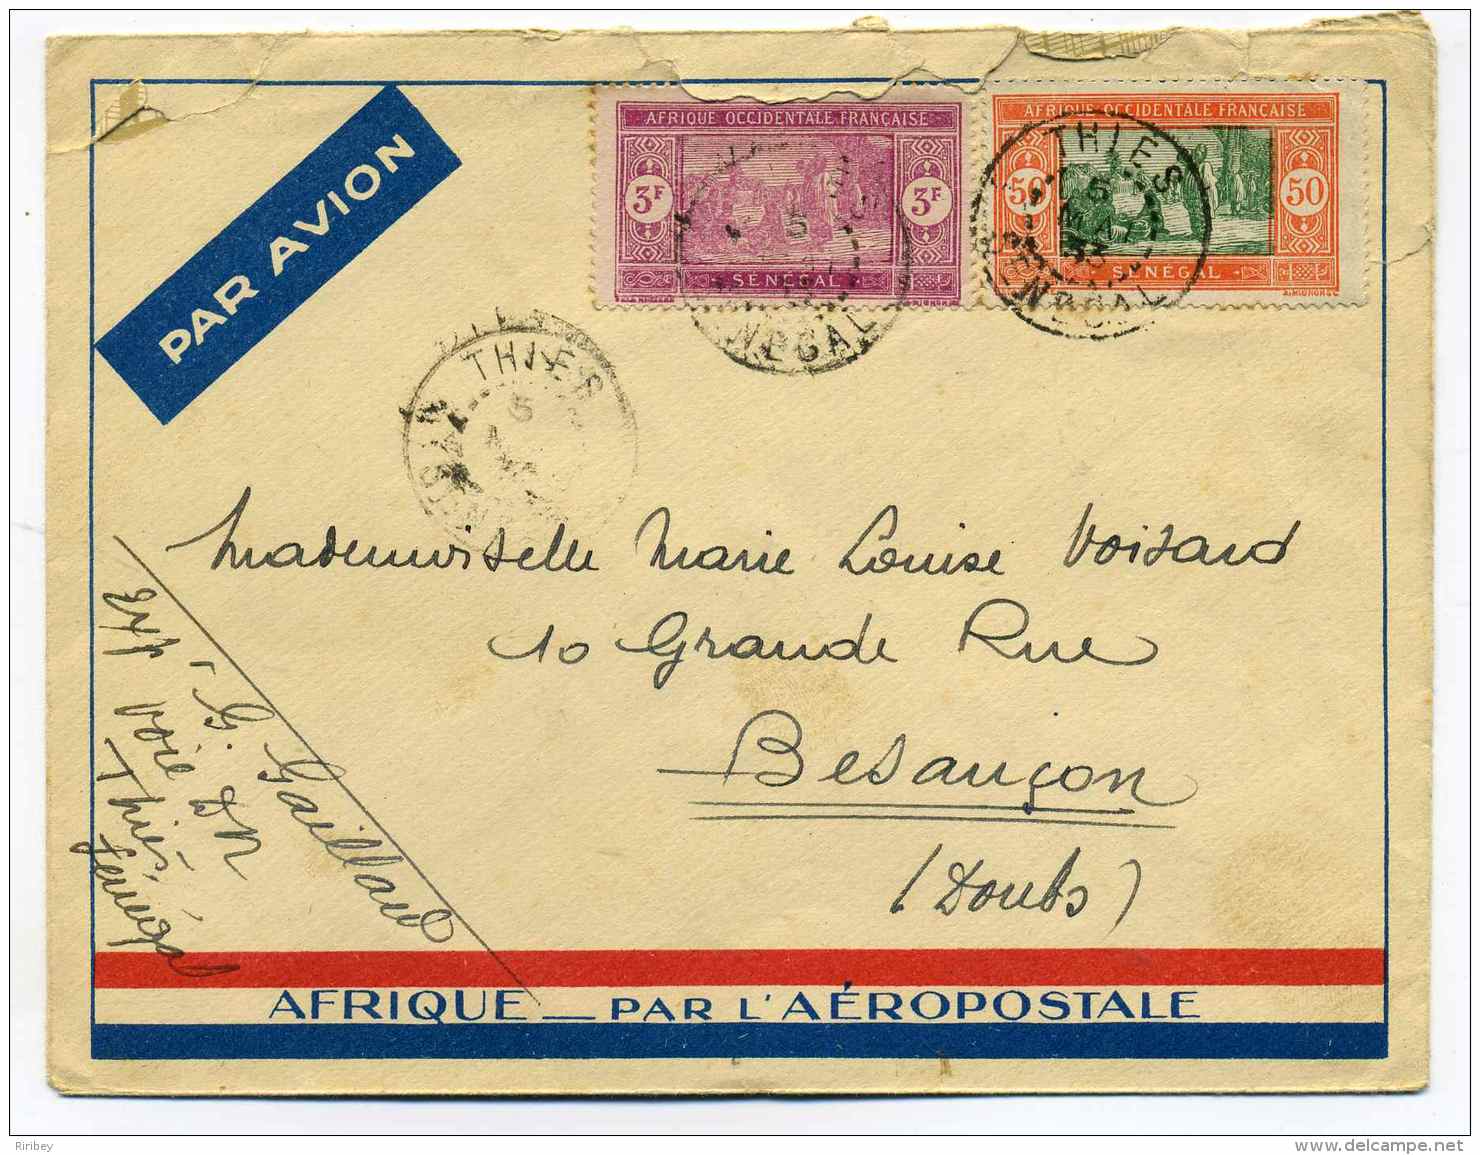 PAR AVION
AFRIQUE OCCIDENTALE FRANÇAISE
3F 3F
SÉNÉGAL
AFRIQUE OCCIDENTALE FRANÇAISE
50 50
SÉNÉGAL
THIES
5
MAI
33
THIES
5
Mademoiselle Marie Louise Voisard
10 Grande Rue
Besançon
(Doubs)
exp- G. Gaillard
voie DN
Thiès
Sénégal
AFRIQUE — PAR L'AÉROPOSTALE
Riribey
www.delcampe.net